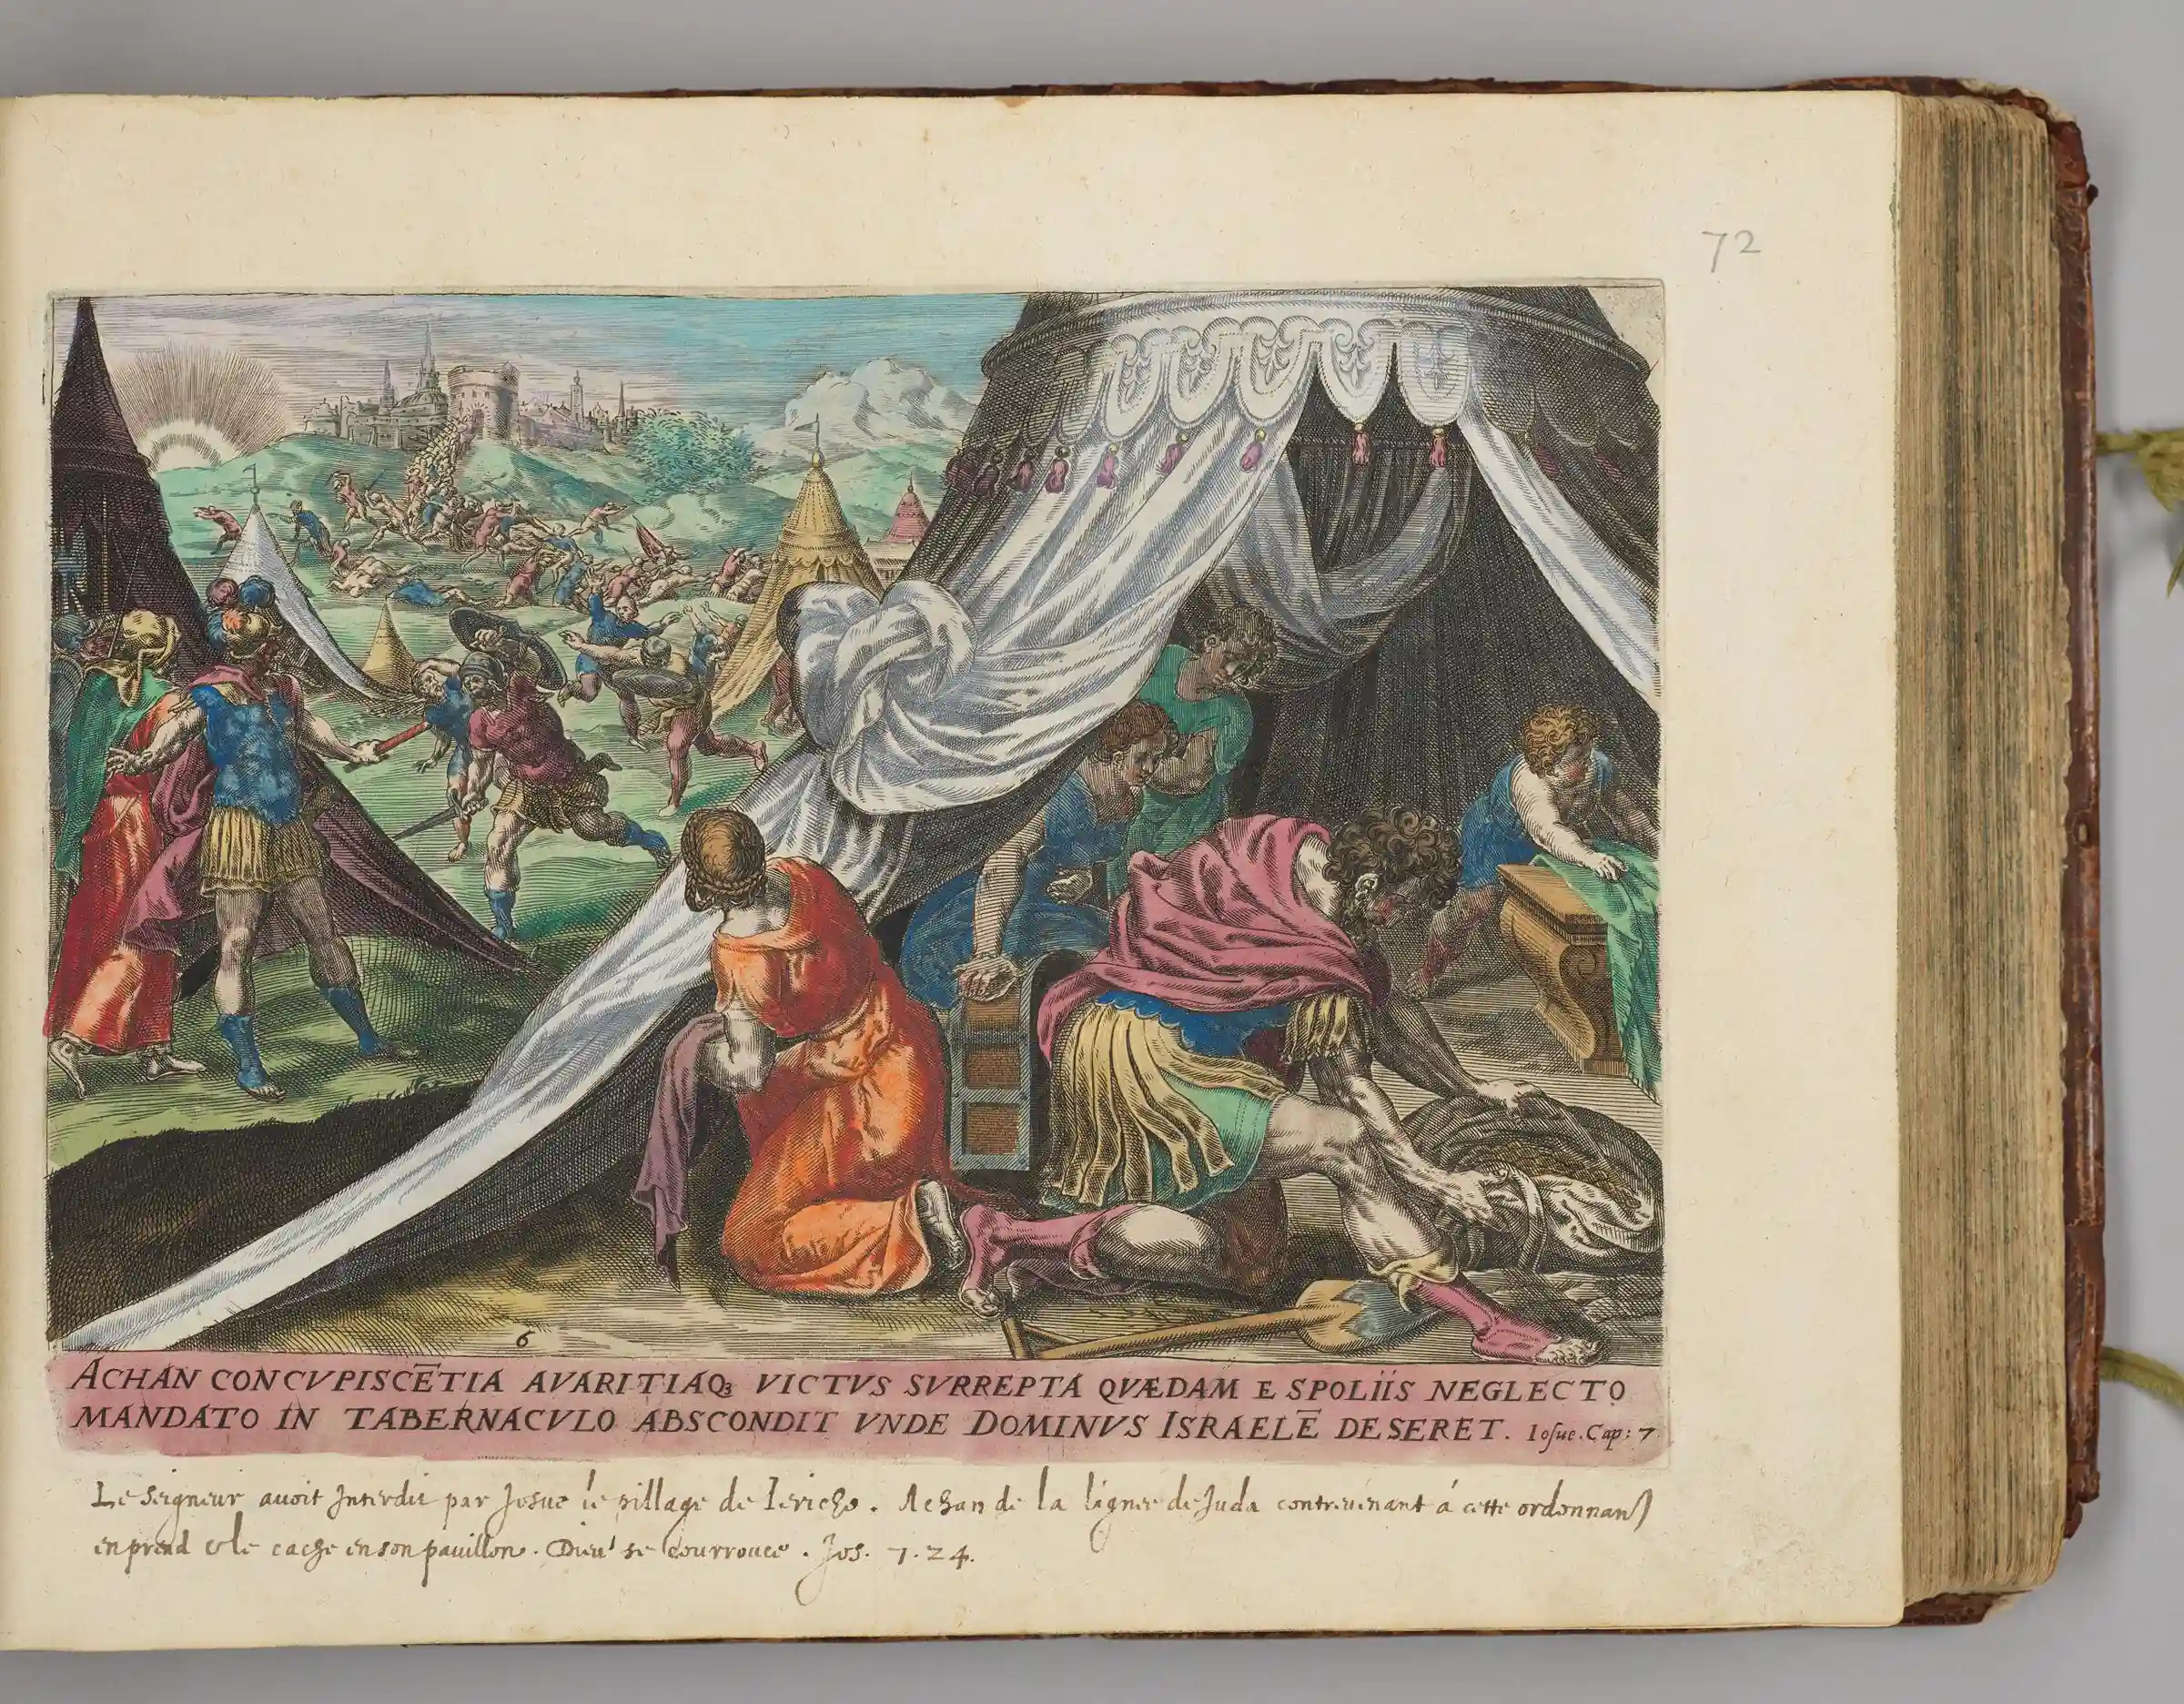 72
6
ACHAN CONCVPISCĒTIA AVARITIAQꝫ VICTVS SVRREPTA QVÆDAM E SPOLIIS NEGLECTO
MANDATO IN TABERNACVLO ABSCONDIT VNDE DOMINVS ISRAELĒ DESERET. Iosue. Cap: 7
Le seigneur auoit Interdit par Josue le pillage de Iericho. Achan de la lignee de Juda contreuenant á cette ordonnan
en prend & le cache en son pauillon. Dieu se courrouce. Jos. 7. 24.